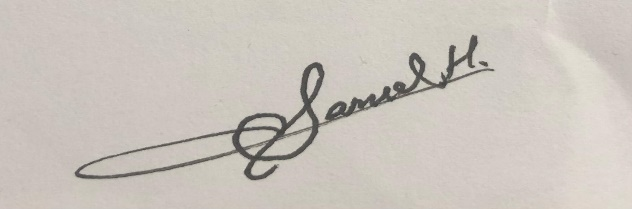 Samuel H.